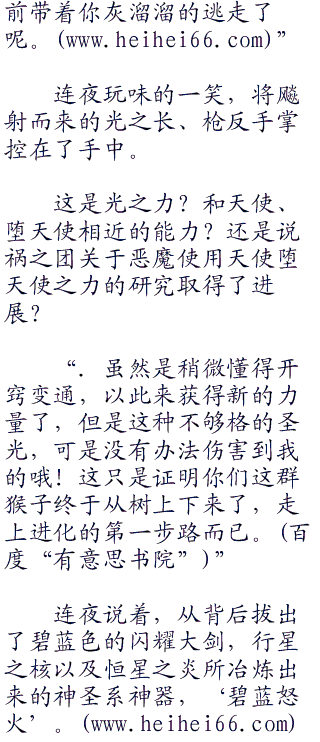 前带着你灰溜溜的逃走了
呢。(www.heihei66.com)”
连夜玩味的一笑，将飚
射而来的光之长、枪反手掌
控在了手中。
这是光之力？和天使、
堕天使相近的能力？还是说
祸之团关于恶魔使用天使堕
天使之力的研究取得了进
展？
“．虽然是稍微懂得开
窍变通，以此来获得新的力
量了，但是这种不够格的圣
光，可是没有办法伤害到我
的哦！这只是证明你们这群
猴子终于从树上下来了，走
上进化的第一步路而已。(百
度“有意思书院”)”
连夜说着，从背后拔出
了碧蓝色的闪耀大剑，行星
之核以及恒星之炎所冶炼出
来的神圣系神器，‘碧蓝怒
火’。(www.heihei66.com)